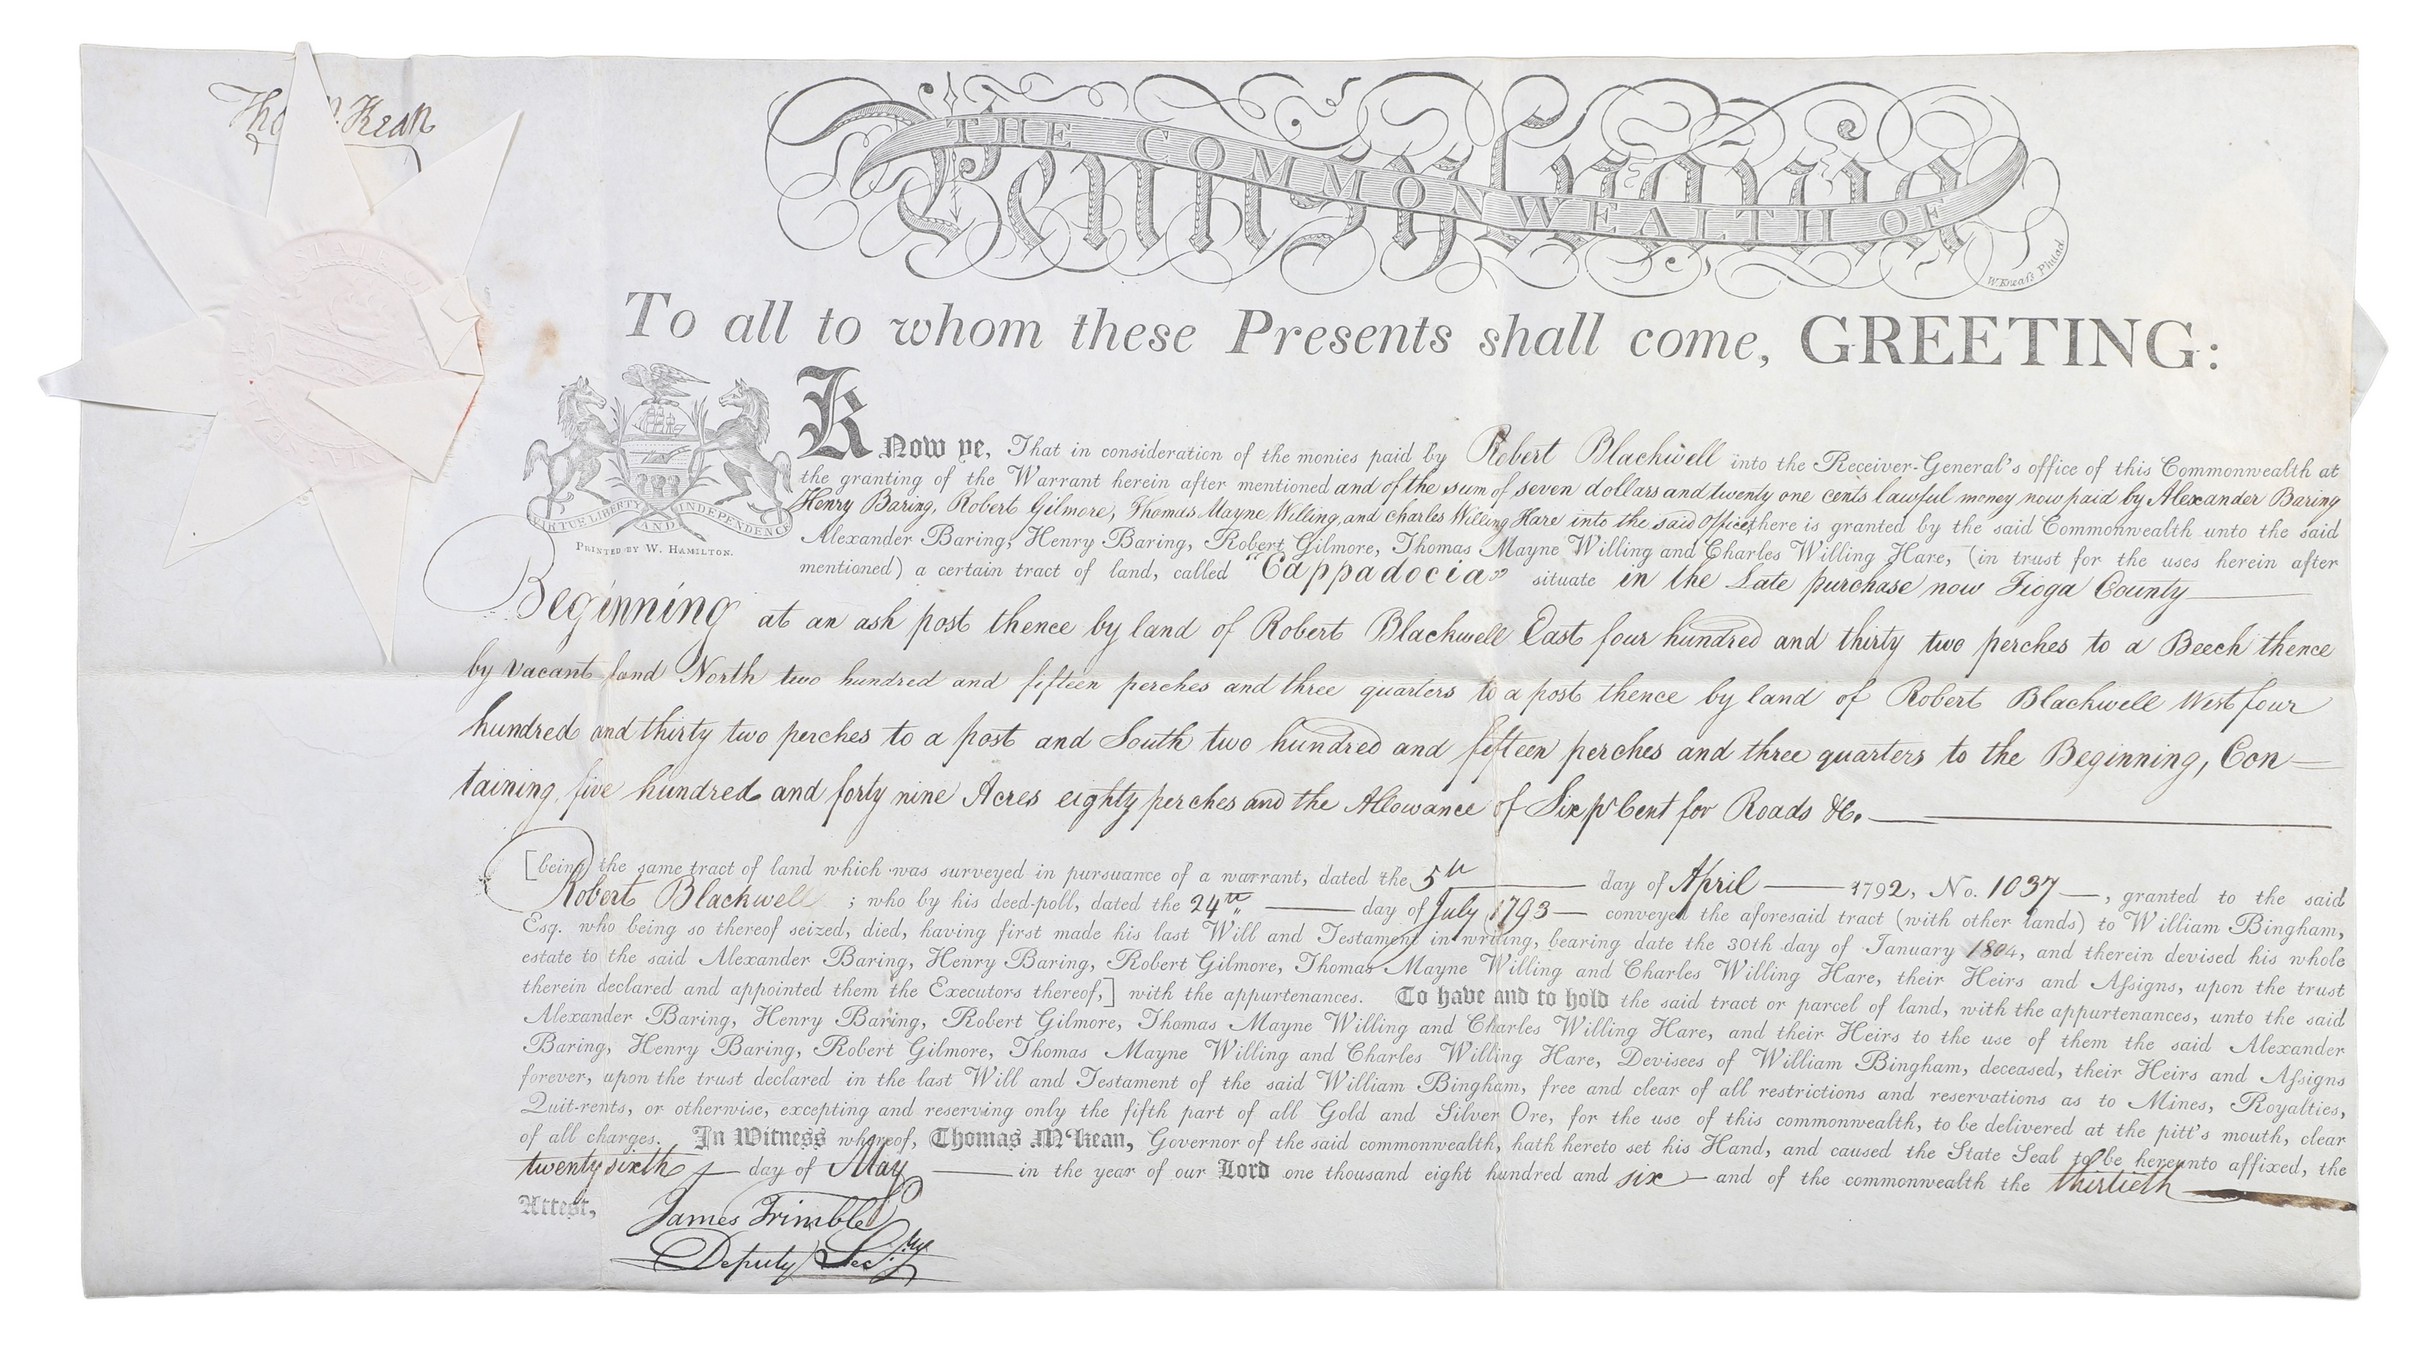 Tho M:Kean
THE COMMONWEALTH OF
Pennsylvania
W.Kneaſs Philad.
To all to whom these Presents shall come, GREETING:
VIRTUE LIBERTY AND INDEPENDENCE
PRINTED BY W. HAMILTON.
Know ye, That in consideration of the monies paid by Robert Blackwell into the Receiver-General's office of this Commonwealth at
the granting of the Warrant herein after mentioned and of the sum of seven dollars and twenty one cents lawful money now paid by Alexander Baring
Henry Baring, Robert Gilmore, Thomas Mayne Willing, and Charles Willing Hare into the said Office, there is granted by the said Commonwealth unto the said
Alexander Baring, Henry Baring, Robert Gilmore, Thomas Mayne Willing and Charles Willing Hare, (in trust for the uses herein after
mentioned) a certain tract of land, called "Cappadocia" situate in the Late purchase now Tioga County
Beginning at an ash post thence by land of Robert Blackwell East four hundred and thirty two perches to a Beech thence
by vacant land North two hundred and fifteen perches and three quarters to a post thence by land of Robert Blackwell West four
hundred and thirty two perches to a post and South two hundred and fifteen perches and three quarters to the Beginning, Con=
taining five hundred and forty nine Acres eighty perches and the Allowance of Six pr Cent for Roads &c.
[being the same tract of land which was surveyed in pursuance of a warrant, dated the 5th day of April 1792, No. 1037, granted to the said
Robert Blackwell ; who by his deed-poll, dated the 24th day of July 1793 conveyed the aforesaid tract (with other lands) to William Bingham,
Esq. who being so thereof seized, died, having first made his last Will and Testament in writing, bearing date the 30th day of January 1804, and therein devised his whole
estate to the said Alexander Baring, Henry Baring, Robert Gilmore, Thomas Mayne Willing and Charles Willing Hare, their Heirs and Aſsigns, upon the trust
therein declared and appointed them the Executors thereof,] with the appurtenances. To have and to hold the said tract or parcel of land, with the appurtenances, unto the said
Alexander Baring, Henry Baring, Robert Gilmore, Thomas Mayne Willing and Charles Willing Hare, and their Heirs to the use of them the said Alexander
Baring, Henry Baring, Robert Gilmore, Thomas Mayne Willing and Charles Willing Hare, Devisees of William Bingham, deceased, their Heirs and Aſsigns
forever, upon the trust declared in the last Will and Testament of the said William Bingham, free and clear of all restrictions and reservations as to Mines, Royalties,
Quit-rents, or otherwise, excepting and reserving only the fifth part of all Gold and Silver Ore, for the use of this commonwealth, to be delivered at the pitt's mouth, clear
of all charges. In Witness whereof, Thomas M'Kean, Governor of the said commonwealth, hath hereto set his Hand, and caused the State Seal to be hereunto affixed, the
twenty sixth day of May in the year of our Lord one thousand eight hundred and six and of the commonwealth the thirtieth
Attest,
James Trimble
Deputy Secy.